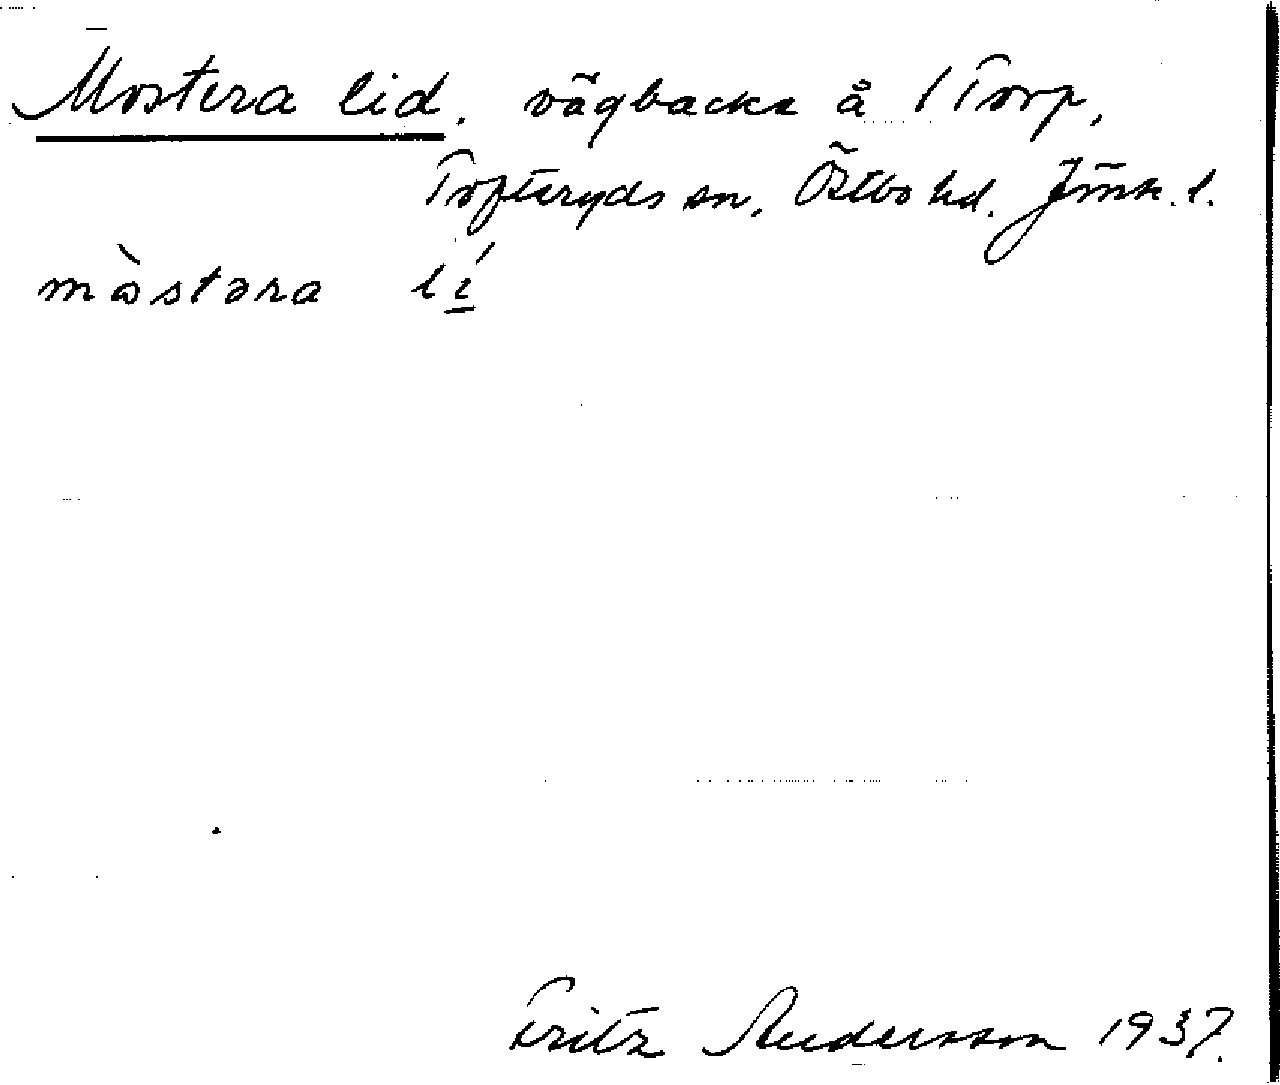 Mostera lid. vägbacke å 1 Torp,
Tofteryds sn, Östbo hd. Jönk. l.
mòstəra lí
Fritz Andersson 1937.